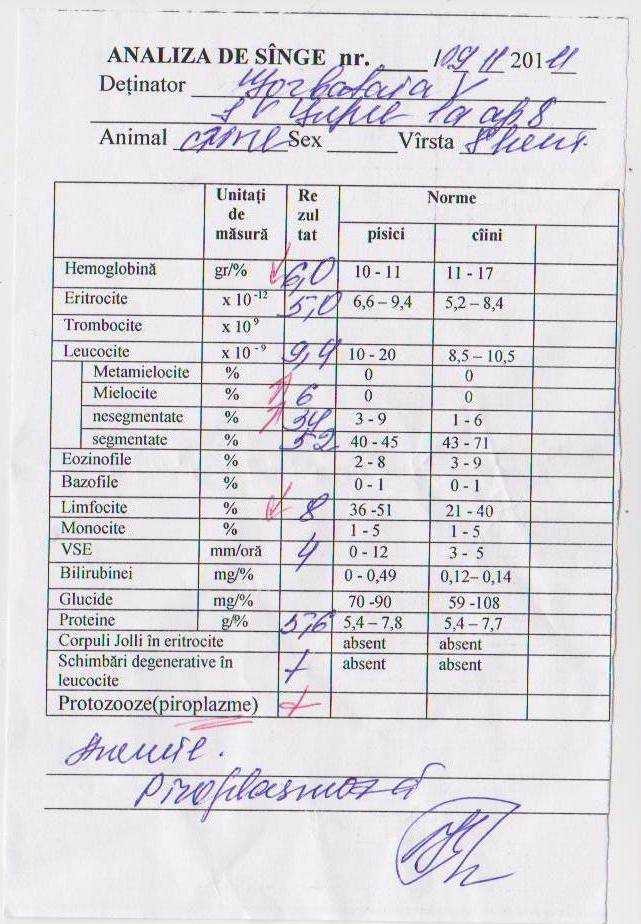 ANALIZA DE SÎNGE nr. ____ /09 11 2011
Deținator
1a ap. 8
Animal cîine Sex ____ Vîrsta
Unitați de măsură Re zul tat Norme
pisici cîini
Hemoglobină gr/% 6,0 10 - 11 11 - 17
Eritrocite x 10 -12 5,0 6,6 – 9,4 5,2 – 8,4
Trombocite x 10 9
Leucocite x 10 - 9 9,4 10 - 20 8,5 – 10,5
Metamielocite % 0 0
Mielocite % 6 0 0
nesegmentate % 34 3 - 9 1 - 6
segmentate % 52 40 - 45 43 - 71
Eozinofile % 2 - 8 3 - 9
Bazofile % 0 - 1 0 - 1
Limfocite % 8 36 -51 21 - 40
Monocite % 1 - 5 1 - 5
VSE mm/oră 4 0 - 12 3 - 5
Bilirubinei mg/% 0 - 0,49 0,12– 0,14
Glucide mg/% 70 -90 59 -108
Proteine g/% 5,6 5,4 – 7,8 5,4 – 7,7
Corpuli Jolli în eritrocite absent absent
Schimbări degenerative în leucocite + absent absent
Protozooze(piroplazme) +
Anemie.
Piroplasmoză